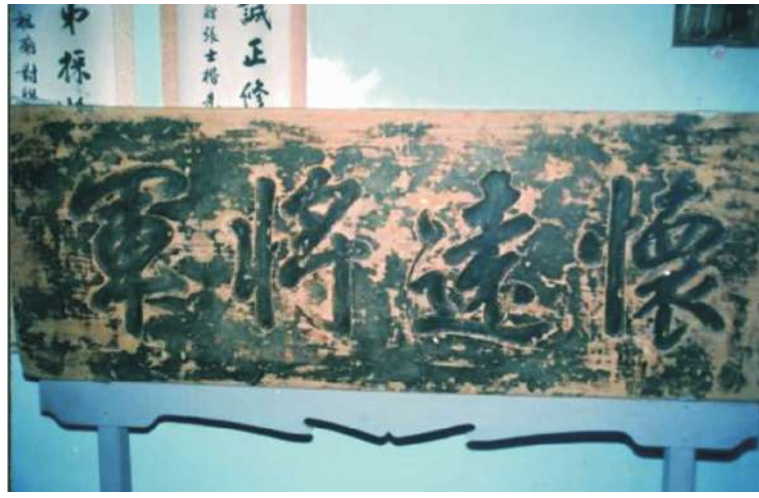 懷遠將軍
誠正修
張士楷
弟探